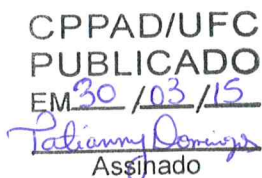 CPPAD/UFC
PUBLICADO
EM 30 /03 /15
Tatianny Domingos
Assinado